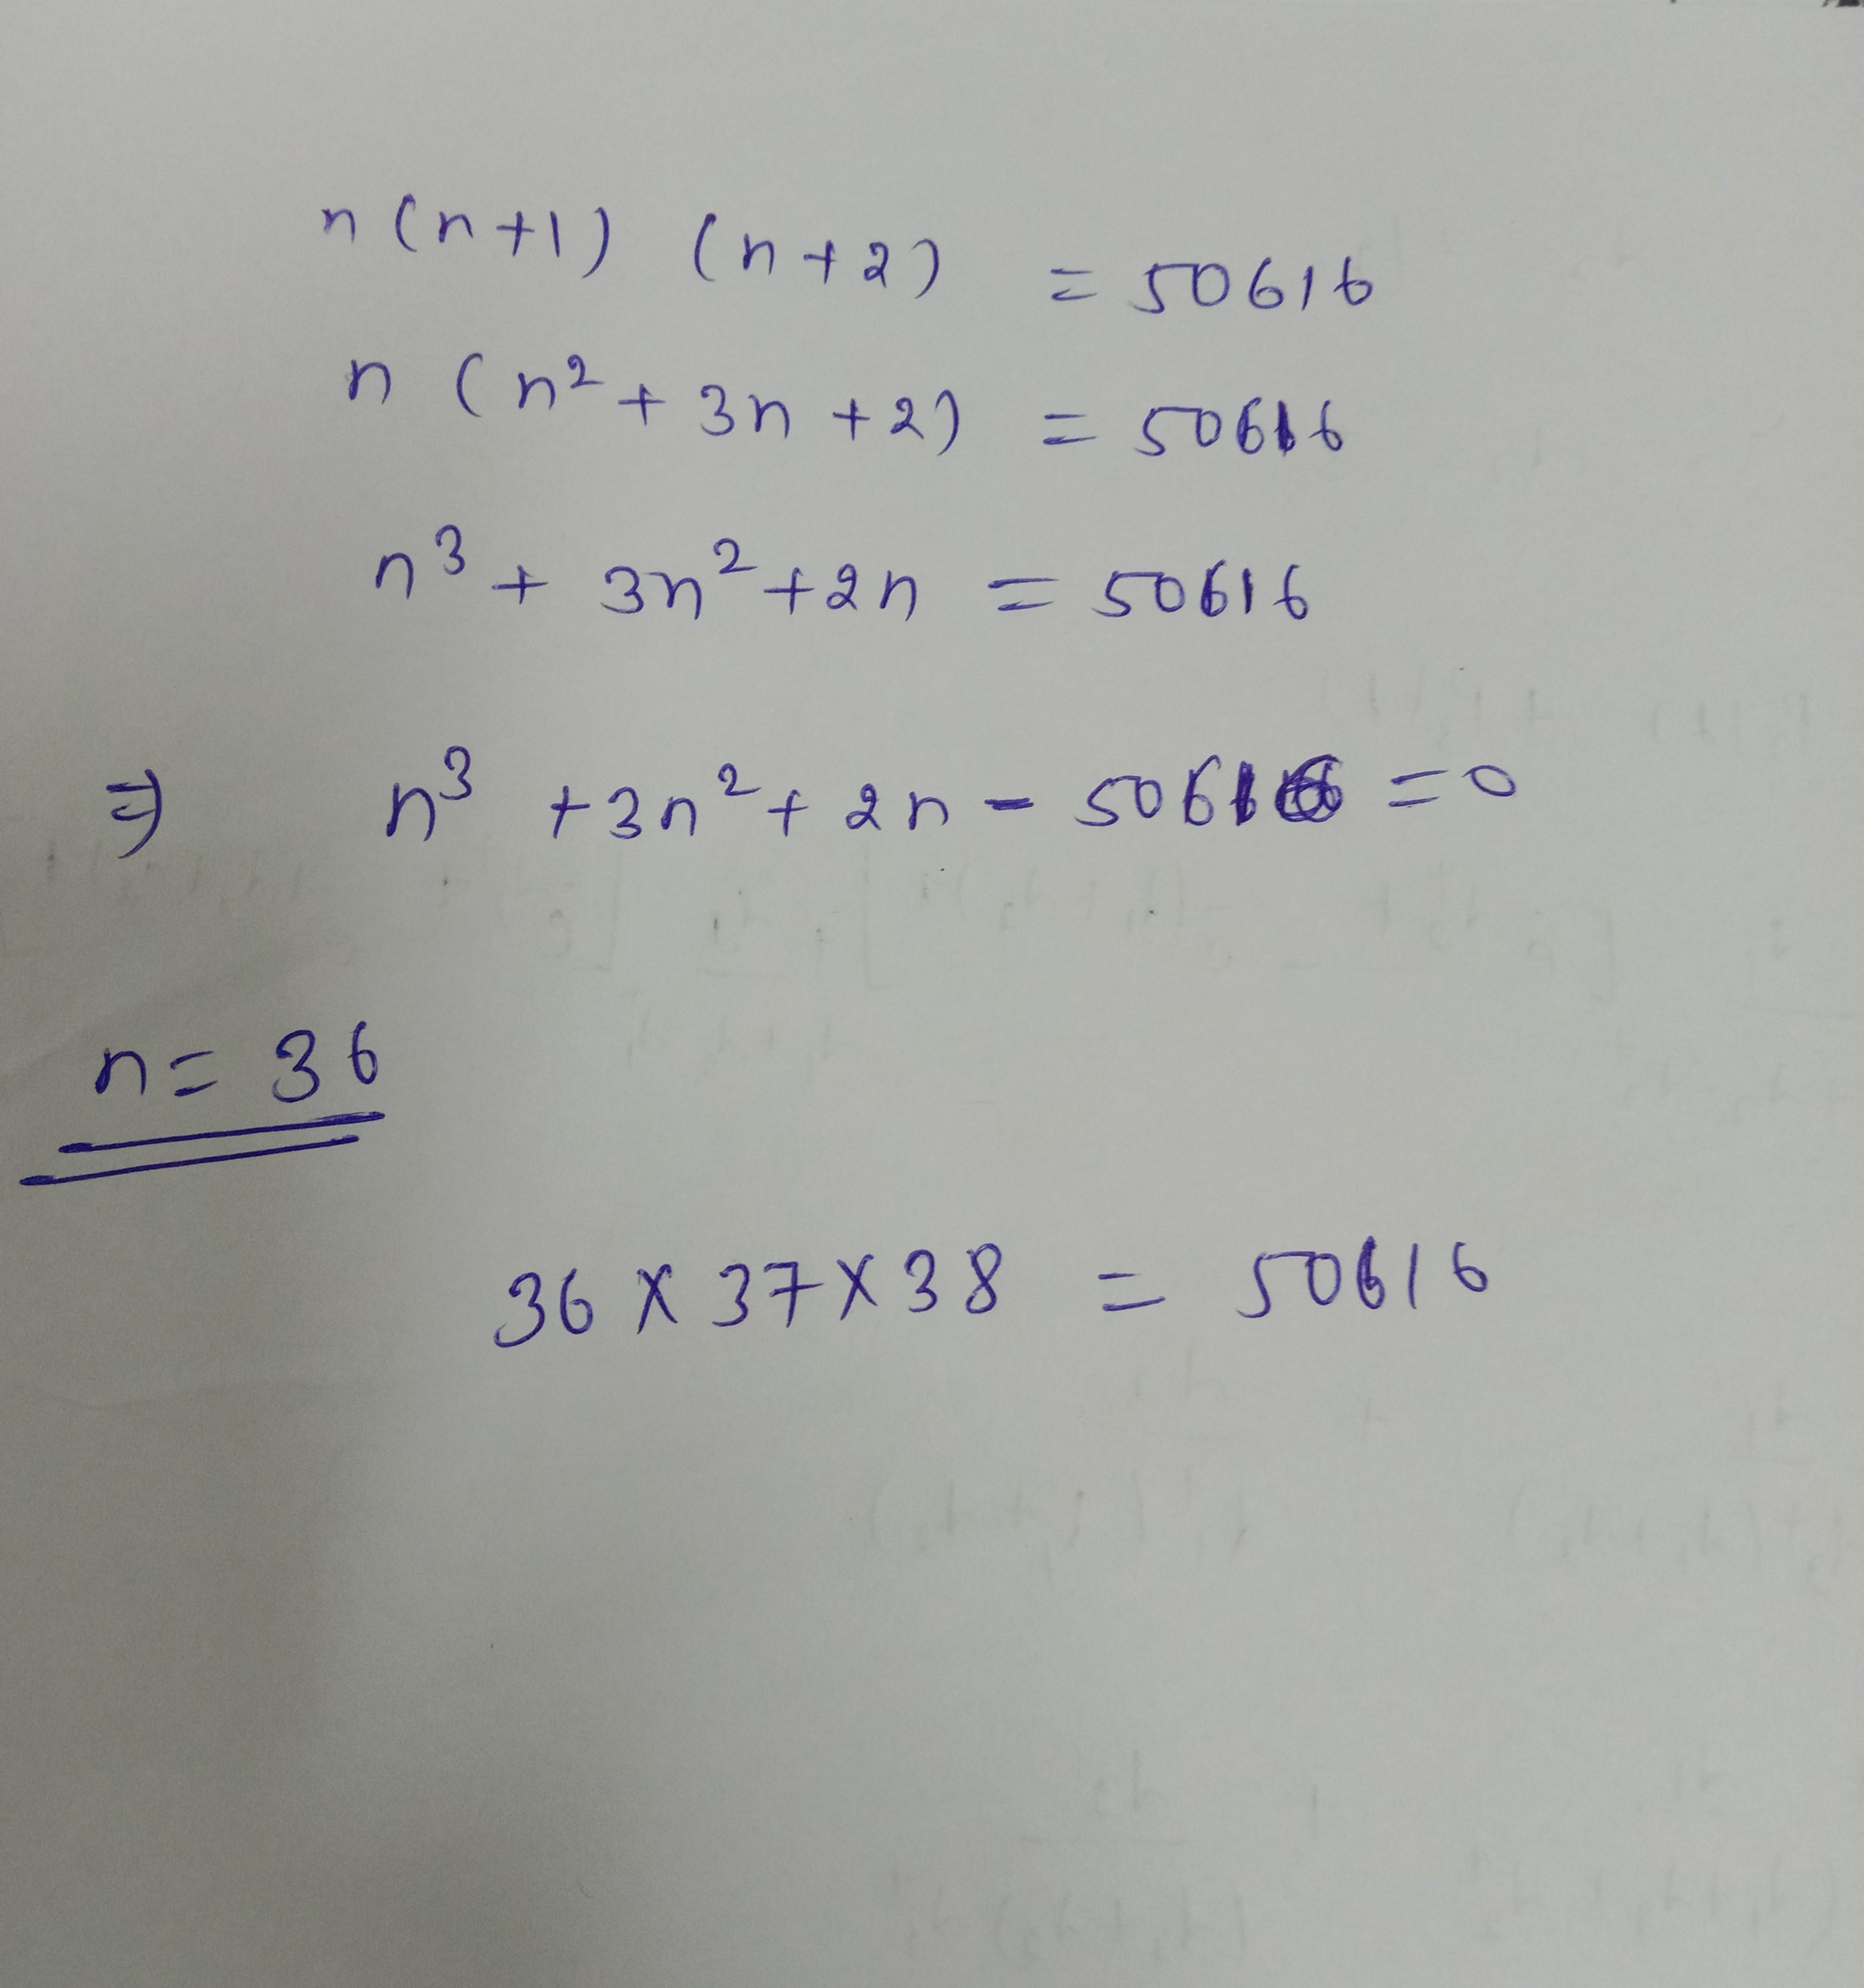 n(n+1) (n+2) = 50616
n (n² + 3n + 2) = 50616
n³ + 3n² + 2n = 50616
⇒ n³ + 3n² + 2n - 50616 = 0
n = 36
36 X 37 X 38 = 50616